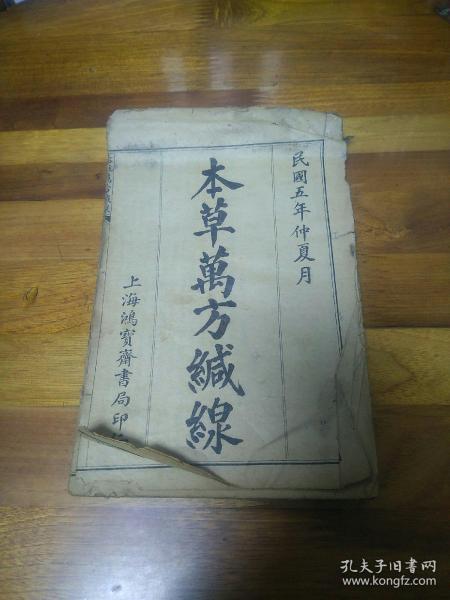 民國五年仲夏月
本草萬方緘線
上海鴻寶齋書局印
孔夫子旧书网
www.kongfz.com